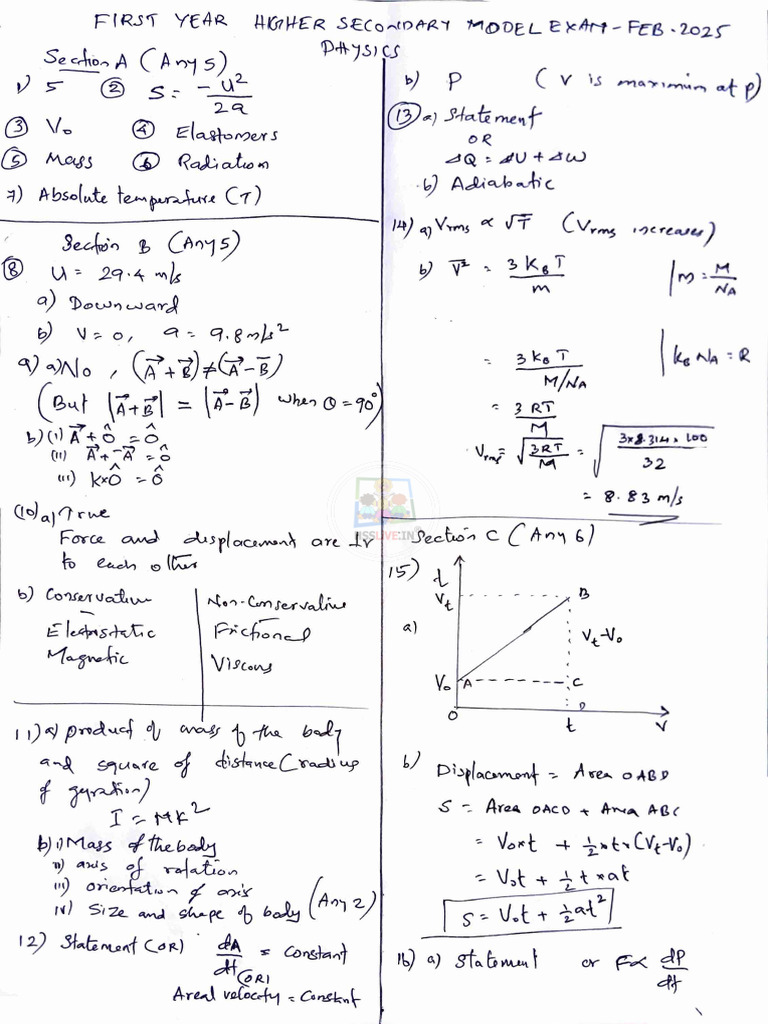 FIRST YEAR HIGHER SECONDARY MODEL EXAM - FEB. 2025
PHYSICS
Section A (Any 5)
1) 5 ② S = -u²/2a
③ V₀ ④ Elastomers
⑤ Mass ⑥ Radiation
7) Absolute temperature (T)
Section B (Any 5)
⑧ u = 29.4 m/s
a) Downward
b) V = 0, a = 9.8 m/s²
9) a) No, (A⃗ + B⃗) ≠ (A⃗ - B̅)
(But |A⃗ + B⃗| = |A⃗ - B⃗| when θ = 90°)
b) (i) A⃗ + 0̂ = 0̂
(ii) A⃗ + -A⃗ = 0̂
(iii) K × 0̂ = 0̂
(10) a) True
Force and displacement are ⊥r
to each other
b) Conservative | Non-Conservative
Electrostatic | Frictional
Magnetic | Viscous
11) a) product of mass of the body
and square of distance (radius
of gyration)
I = MK²
b) i) Mass of the body
ii) axis of rotation
iii) orientation of axis
iv) Size and shape of body (Any 2)
12) Statement (OR) dA/dt = constant
(OR)
Areal velocity = Constant
b) P (V is maximum at P)
⑬ a) Statement
OR
ΔQ = ΔU + ΔW
b) Adiabatic
14) a) Vrms ∝ √T (Vrms increases)
b) V̅² = 3 K_B T / m | m = M/NA
= 3 K_B T / (M/NA) | K_B NA = R
= 3RT/M
Vrms = √(3RT/M) = √(3×8.314×100 / 32)
= 8.83 m/s
Section C (Any 6)
15) t
Vt B
a) Vt-V₀
V₀ A C
O t D V
b) Displacement = Area OABD
S = Area OACD + Area ABC
= V₀×t + ½ × t × (Vt-V₀)
= V₀t + ½ t × at
S = V₀t + ½ at²
16) a) Statement or F ∝ dP/dt
HSSLIVE.IN